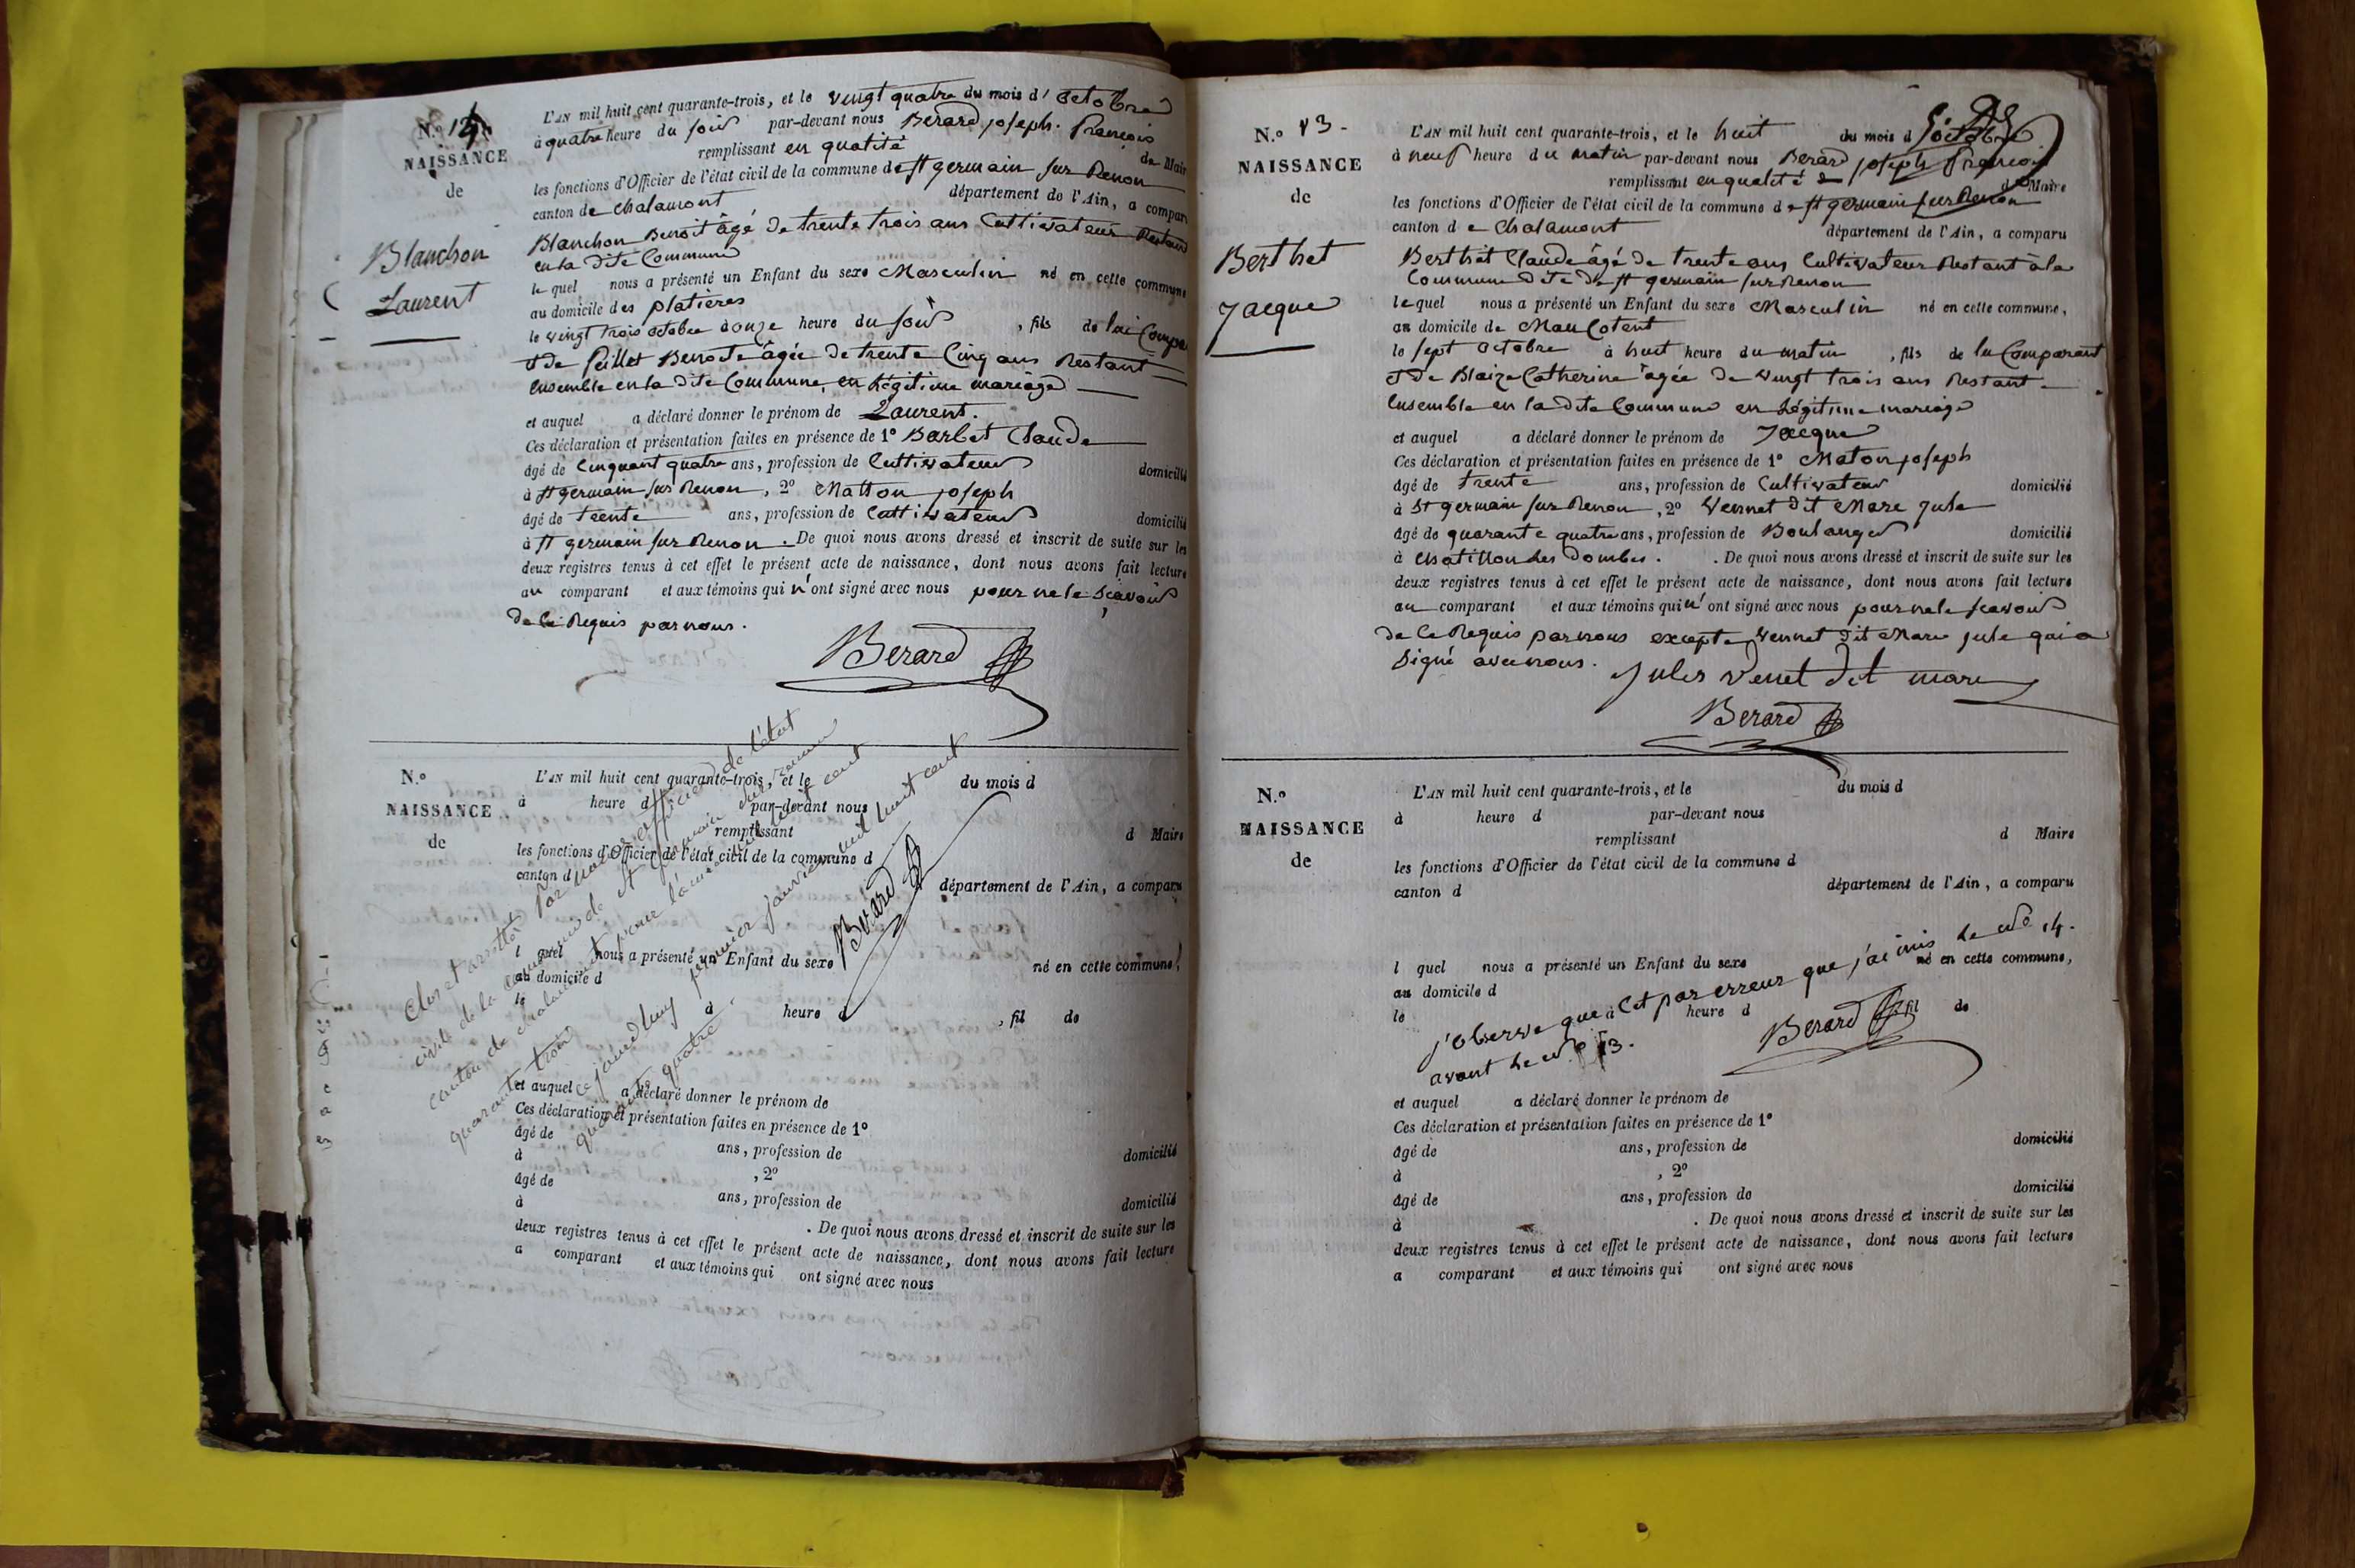 N.º 14
NAISSANCE
de
Blanchon
Laurent
L'AN mil huit cent quarante-trois, et le vingt quatre du mois d' octobre
à quatre heure du soir par-devant nous Berard joseph. françois
remplissant en qualité de Maire
les fonctions d'Officier de l'état civil de la commune de st germain sur Renon
canton de chalamont département de l'Ain, a comparu
Blanchon Benoit âgé de trente trois ans Cultivateur Restant
en la dite Commune
le quel nous a présenté un Enfant du sexe Masculin né en cette commune
au domicile des platières
le vingt trois octobre donze heure du soir , fils de lui Compa
et de Benoite âgée de trente Cinq ans Restant
ensemble en la dite Commune, en Légitime mariage
et auquel a déclaré donner le prénom de Laurent.
Ces déclaration et présentation faites en présence de 1º Barbet Claude
âgé de Cinquant quatre ans, profession de Cultivateur domicilié
à st germain sur Renon, 2º Matton joseph
âgé de trente ans, profession de Cultivateur domicilié
à st germain sur Renon. De quoi nous avons dressé et inscrit de suite sur les
deux registres tenus à cet effet le présent acte de naissance, dont nous avons fait lecture
au comparant et aux témoins qui n'ont signé avec nous pour ne le scavoir
de ce Requis par nous.
Berard
N.º
NAISSANCE
de
L'AN mil huit cent quarante-trois, et le du mois d
à heure d par-devant nous
remplissant d Maire
les fonctions d'Officier de l'état civil de la commune d
canton d
département de l'Ain, a comparu
l quel nous a présenté un Enfant du sexe né en cette commune,
au domicile d
le à heure d , fil de
et auquel a déclaré donner le prénom de
Ces déclaration et présentation faites en présence de 1º
âgé de ans, profession de domicilié
à , 2º
âgé de ans, profession de domicilié
à . De quoi nous avons dressé et inscrit de suite sur les
deux registres tenus à cet effet le présent acte de naissance, dont nous avons fait lecture
a comparant et aux témoins qui ont signé avec nous
Clos et arretté par nous officier de l'état
civil de la commune de st germain sur renon
canton de chalamont pour l'année mil huit cent
quarante trois ce jourd'huy premier janvier mil huit cent
quarante quatre.
Berard
N.º 13 -
NAISSANCE
de
Berthet
Jacque
L'AN mil huit cent quarante-trois, et le huit du mois d'octobre
à neuf heure du matin par-devant nous Berard joseph françois
remplissant en qualité de Maire
les fonctions d'Officier de l'état civil de la commune de st germain sur Renon
canton de Chalamont département de l'Ain, a comparu
Berthet Claude âgé de trente ans Cultivateur Restant à la
Commune dite de st germain sur Renon
le quel nous a présenté un Enfant du sexe Masculin né en cette commune,
au domicile de Maucotent
le sept octobre à huit heure du matin , fils de lu Comparant
et de Blaize Catherine âgée de vingt trois ans Restant
ensemble en la dite Commune en Légitime mariage
et auquel a déclaré donner le prénom de Jacque
Ces déclaration et présentation faites en présence de 1º Maton joseph
âgé de trente ans, profession de Cultivateur domicilié
à St germain sur Renon, 2º Vennet dit Mare Jule
âgé de quarante quatre ans, profession de Boulanger domicilié
à Chatillon les Dombes. . De quoi nous avons dressé et inscrit de suite sur les
deux registres tenus à cet effet le présent acte de naissance, dont nous avons fait lecture
au comparant et aux témoins qui n'ont signé avec nous pour ne le scavoir
de ce Requis par nous excepte Vennet dit Mare jule qui a
signé avec nous. Jules Venet dit mare
Berard
N.º
NAISSANCE
de
L'AN mil huit cent quarante-trois, et le du mois d
à heure d par-devant nous
remplissant d Maire
les fonctions d'Officier de l'état civil de la commune d
canton d département de l'Ain, a comparu
l quel nous a présenté un Enfant du sexe né en cette commune,
au domicile d
le à heure d , fil de
j'observe que Cet par erreur que j'ai mis le nº 14.
avant le nº 13.
Berard
et auquel a déclaré donner le prénom de
Ces déclaration et présentation faites en présence de 1º
âgé de ans, profession de domicilié
à , 2º
âgé de ans, profession de domicilié
à . De quoi nous avons dressé et inscrit de suite sur les
deux registres tenus à cet effet le présent acte de naissance, dont nous avons fait lecture
a comparant et aux témoins qui ont signé avec nous